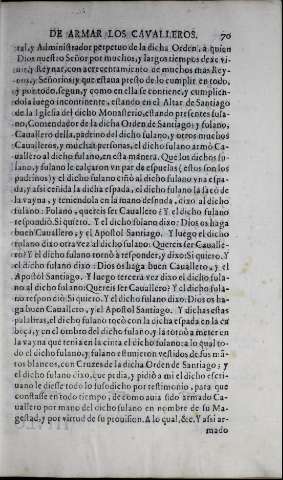 DE ARMAR LOS CAVALLEROS. 70
ral, y Administrador perpetuo de la dicha Orden, a quien
Dios nuestro Señor por muchos, y largos tiempos dexe vi-
uir, y Reynar, con acrecentamiento de muchos mas Rey-
nos, y Señorios, y que estaua presto de lo cumplir en todo,
y por todo, segun, y como en ella se contiene, y cumplien-
dola luego incontinente, estando en el Altar de Santiago
de la Iglesia del dicho Monasterio, estando presentes fula-
no, Comendador de la dicha Orden de Santiago; y fulano,
Cauallero della, padrino del dicho fulano, y otros muchos
Caualleros, y muchas personas, el dicho fulano armò Ca-
uallero al dicho fulano, en esta manera. Que los dichos fu-
lano, y fulano le calçaron vn par de espuelas (estos son los
padrinos) y el dicho fulano ciñò al dicho fulano vna espa-
da, y assi ceñida la dicha espada, el dicho fulano la sacò de
la vayna, y teniendola en la mano desnuda, dixo al dicho
fulano: Fulano, quereis ser Cauallero? Y el dicho fulano
respondiò. Si quiero. Y el dicho fulano dixo: Dios os haga
buen Cauallero, y el Apostol Santiago. Y luego el dicho
fulano dixo otra vez al dicho fulano: Quereis ser Caualle-
ro? Y el dicho fulano tornò à responder, y dixo: Si quiero. Y
el dicho fulano dixo: Dios os haga buen Cauallero, y el
Apostol Santiago. Y luego tercera vez dixo el dicho fula-
no al dicho fulano: Quereis ser Cauallero? Y el dicho fula-
no respondiò: Si quiero. Y el dicho fulano dixo: Dios os ha-
ga buen Cauallero, y el Apostol Santiago. Y dichas estas
palabras, el dicho fulano tocò con la dicha espada en la ca
beça, y en el ombro del dicho fulano, y la tornò a meter en
la vayna que tenia en la cinta el dicho fulano: a lo qual to-
do el dicho fulano, y fulano estuuieron vestidos de sus mã-
tos blancos, con Cruzes de la dicha Orden de Santiago; y
el dicho fulano dixo, que pedia, y pidiò a mi el dicho escri-
uano le diesse todo lo susodicho por testimonio, para que
constasse en todo tiempo, de como auia sido armado Ca-
uallero por mano del dicho fulano en nombre de su Ma-
gestad, y por virtud de su prouision. A lo qual, &c. Y assi ar-
mado